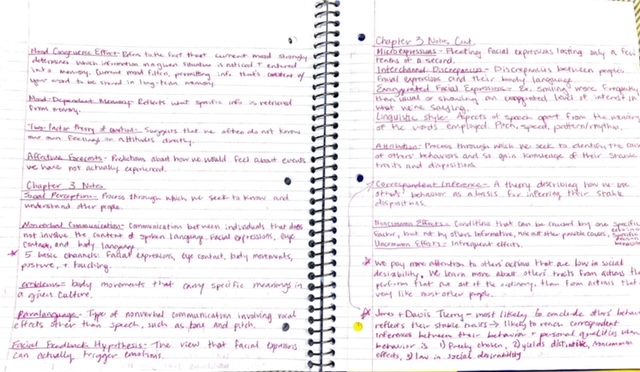 Mood Congruence Effect- Refers to the fact that current mood strongly
determines which information in a given situation is noticed + entered
into memory. Current mood filters, permitting info that's content of
your mood to be stored in long-term memory.
Mood-Dependent Memory- Reflects what specific info is retrieved
from memory.
Two-factor theory of emotion- Suggests that we often do not know
our own feelings or attitudes directly.
Affective Forecasts- Predictions about how we would feel about events
we have not actually experienced.
Chapter 3 Notes
Social Perception- Process through which we seek to know and
understand other people.
Nonverbal Communication- Communication between individuals that does
not involve the content of spoken language. Facial expressions, eye
contact, and body language.
5 basic channels: Facial expressions, eye contact, body movements,
posture, + touching.
emblems- body movements that carry specific meanings in
a given culture.
Paralanguage- Type of nonverbal communication involving vocal
effects other than speech, such as tone and pitch.
Facial Feedback Hypothesis- The view that facial expressions
can actually trigger emotions.
Chapter 3 Notes Cont.
Microexpressions- Fleeting facial expressions lasting only a few
tenths of a second.
Interchannel Discrepancies- Discrepancies between people's
facial expressions and their body language.
Exaggerated Facial Expressions- Ex. Smiling more frequently
than usual or showing an exaggerated level of interest in
what we're saying.
Linguistic Style- Aspects of speech apart from the meaning
of the words employed. Pitch, speed, pattern/rhythm.
Attribution- Process through which we seek to identify the causes
of others' behaviors and so gain knowledge of their stable
traits and dispositions.
Correspondent Inference- A theory describing how we use
others' behavior as a basis for inferring their stable
dispositions.
Noncommon Effects- Condition that can be caused by one specific
factor, but not by others.
Uncommon Effects- Infrequent effects.
We pay more attention to others' actions that are low in social
desirability. We learn more about others' traits from actions they
perform that are out of the ordinary, than from actions that
very like most other people.
Jones + Davis Theory- most likely to conclude others' behavior
reflects their stable traits → likely to reach correspondent
inferences between their behavior + personal qualities when
behavior is 1) freely chosen, 2) yields distinctive, noncommon
effects, 3) low in social desirability